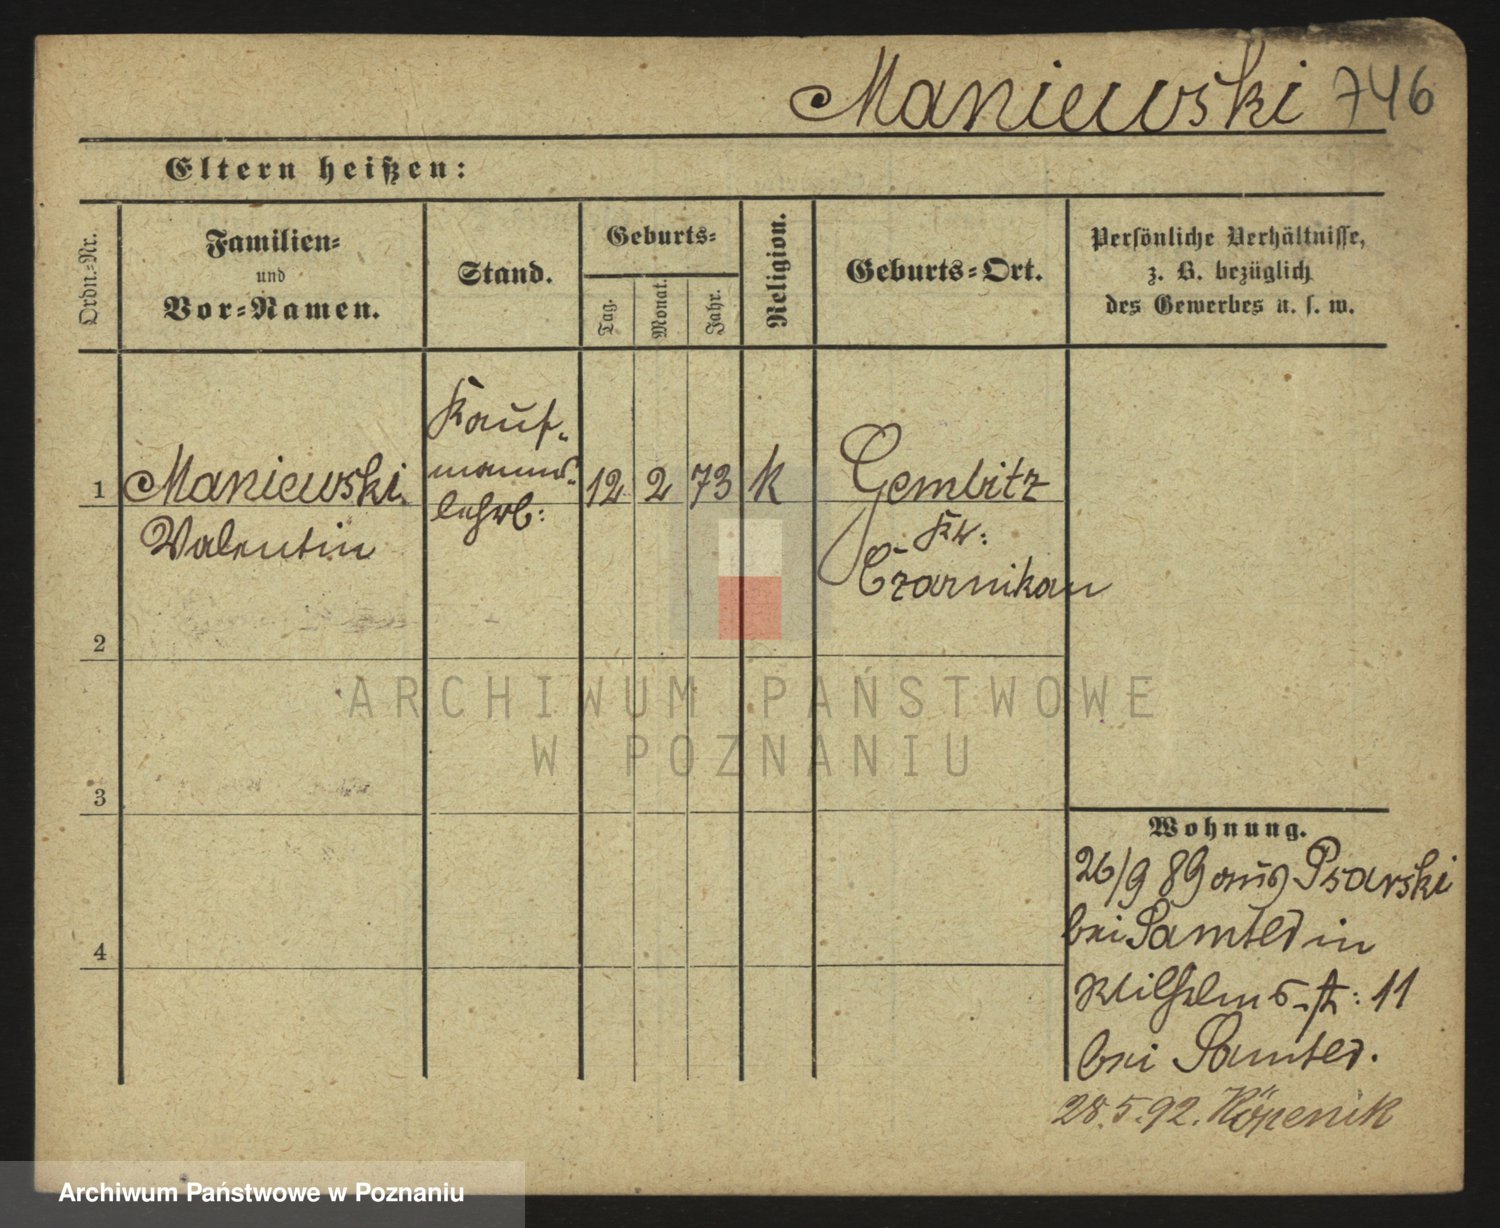 Maniewski 746
Eltern heißen:
Ordn.-Nr.
Familien-
und
Vor-Namen.
Stand.
Geburts-
Tag.
Monat.
Jahr.
Religion.
Geburts-Ort.
Persönliche Verhältnisse,
z. B. bezüglich
des Gewerbes u. s. w.
1
Maniewski
Valentin
Kauf-
manns-
lehrl:
12
2
73
k
Gembitz
Kr:
Czarnikau
2
3
4
Wohnung.
26/9 89 aus Psarski
bei Samter in
Wilhelms-st: 11
bei Samter.
28.5.92. Köpenik
ARCHIWUM PAŃSTWOWE
W POZNANIU
Archiwum Państwowe w Poznaniu